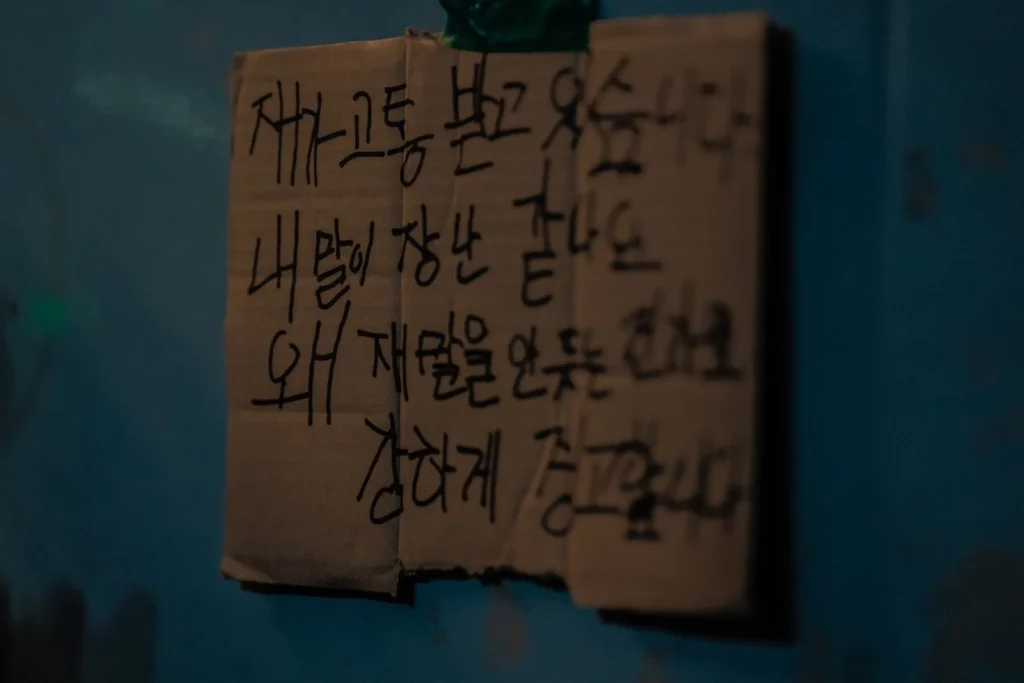 재가 고통 받고 있습니다
내 말이 장난 같나요
왜 재 말을 안듣는
강하게 경고합니다